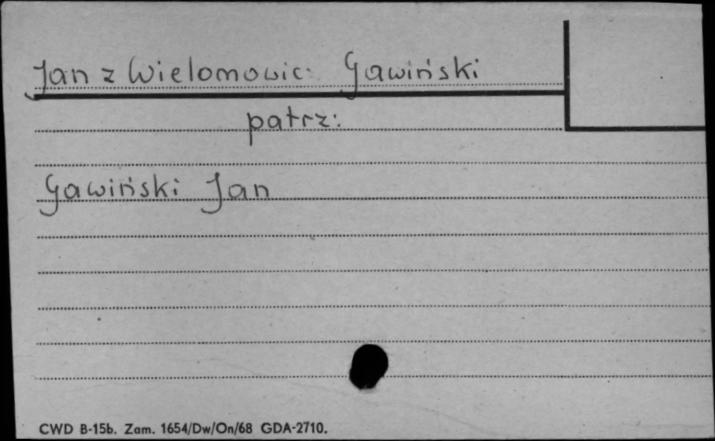 Jan z Wielomowic Gawiński
patrz:
Gawiński Jan
CWD B-15b. Zam. 1654/Dw/On/68 GDA-2710.